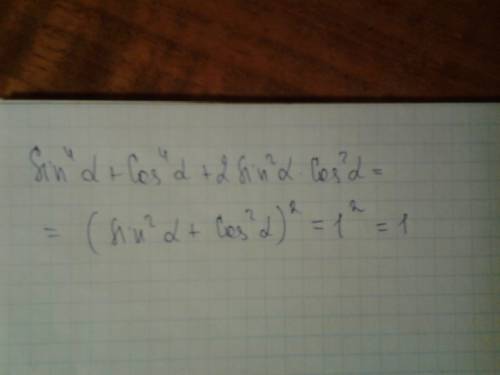 Sin⁴α + Cos⁴α + 2Sin²α · Cos²α =
= (Sin²α + Cos²α)² = 1² = 1